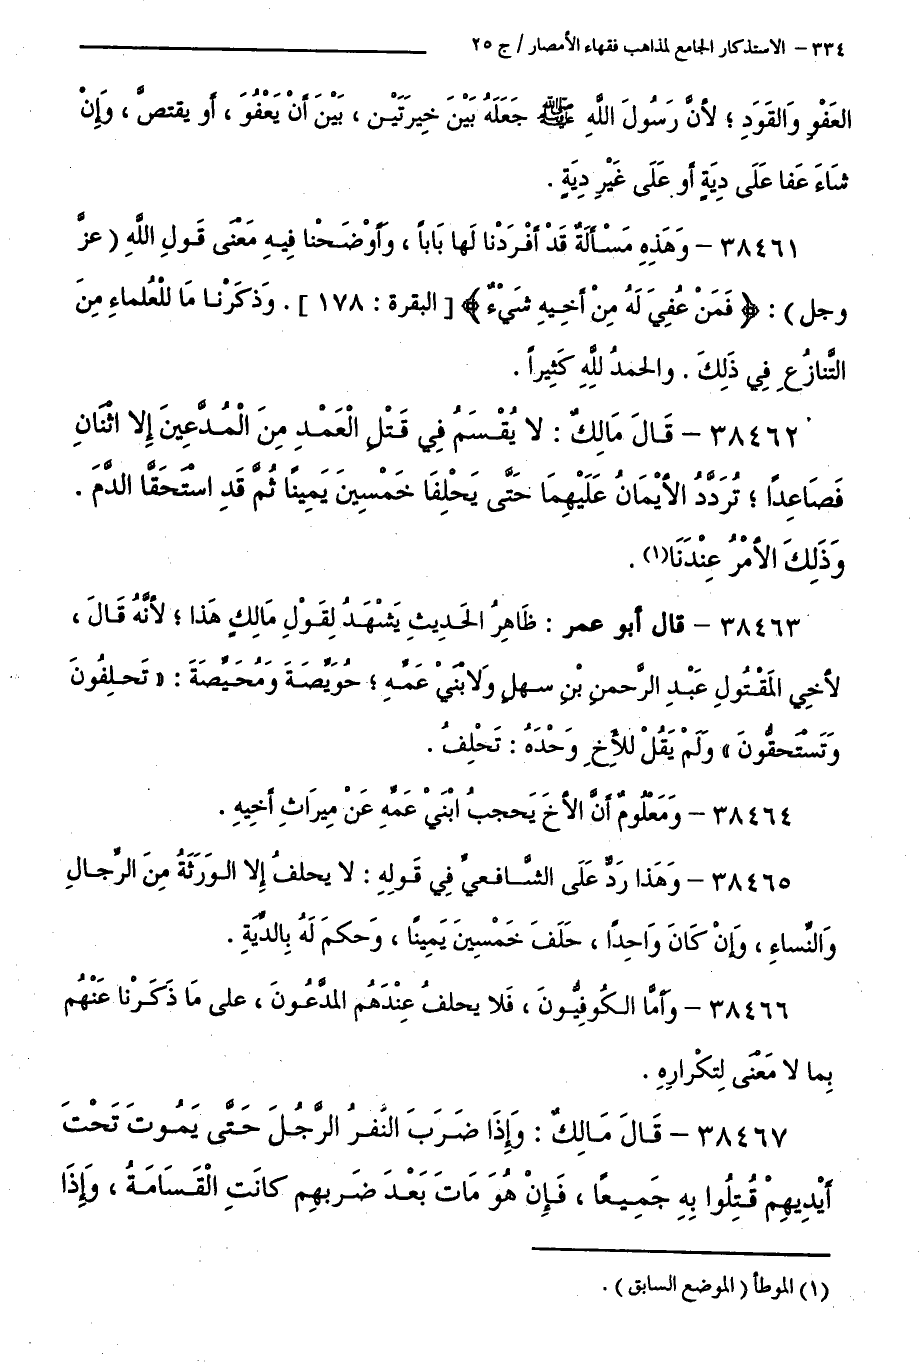 ٣٣٤ - الاستذكار الجامع لمذاهب فقهاء الأمصار / ج ٢٥
العَفْوِ وَالقَوَدِ ؛ لأنَّ رَسُولَ اللَّهِ ﷺ جَعَلَهُ بَيْنَ خيرَتَيْنِ ، بَيْنَ أنْ يَعْفُوَ ، أو يقتصَّ ، وَإنْ
شَاءَ عَفا عَلَى دِيَةٍ أو عَلَى غَيْرِ دِيَةٍ .
٣٨٤٦١ - وَهَذِهِ مَسْألَةٌ قَدْ أفْرَدْنا لَها بَاباً ، وَأوْضَحْنا فِيهِ مَعْنَى قَولِ اللَّهِ ( عزَّ
وجل ) : ﴿ فَمَنْ عُفِيَ لَهُ مِنْ أخِيهِ شَيْءٌ ﴾ [ البقرة : ١٧٨ ] . وَذكَرْنا مَا لِلْعُلماءِ مِنَ
التَّنازُعِ فِي ذَلِكَ . والحمدُ للَّهِ كَثِيراً .
٣٨٤٦٢ - قَالَ مَالِكٌ : لا يُقْسَمُ فِي قَتْلِ الْعَمْدِ مِنَ الْمُدَّعِينَ إلا اثْنَانِ
فَصَاعِداً ؛ تُرَدَّدُ الأيْمَانُ عَلَيْهِمَا حَتَّى يَحْلِفَا خَمْسِينَ يَمِيناً ثُمَّ قَدِ اسْتَحَقَّا الدَّمَ .
وَذَلِكَ الأمْرُ عِنْدَنَا(١) .
٣٨٤٦٣ - قال أبو عمر : ظَاهِرُ الحَدِيثِ يَشْهَدُ لِقَوْلِ مَالِكٍ هَذا ؛ لأنَّهُ قَالَ ،
لأخِي المَقْتُولِ عَبْدِ الرَّحمنِ بْنِ سهلٍ وَلابْنَيْ عَمِّهِ ؛ حُوَيِّصَةَ وَمُحَيِّصَةَ : « تَحلِفُونَ
وَتَسْتَحقُّونَ » وَلَمْ يَقُلْ للأخِ وَحْدَهُ : تَحْلِفُ .
٣٨٤٦٤ - وَمَعْلُومٌ أنَّ الأخَ يَحجبُ ابْنَيْ عَمِّهِ عَنْ مِيرَاثِ أخِيهِ .
٣٨٤٦٥ - وَهَذا رَدٌّ عَلَى الشَّافعيِّ فِي قَولِهِ : لا يحلفُ إلا الوَرَثَةُ مِنَ الرِّجالِ
وَالنِّساءِ ، وَإنْ كَانَ وَاحِداً ، حَلَفَ خَمْسِينَ يَمِينًا ، وَحكمَ لَهُ بِالدِّيَةِ .
٣٨٤٦٦ - وَأمَّا الكُوفِيُّونَ ، فَلا يحلفُ عِنْدَهُم المدَّعُونَ ، على مَا ذَكَرْنا عَنْهُم
بِما لا مَعْنَى لِتكْرارِهِ .
٣٨٤٦٧ - قَالَ مَالِكٌ : وَإذَا ضَرَبَ النَّفرُ الرَّجُلَ حَتَّى يَمُوتَ تَحْتَ
أيْدِيهِمْ قُتِلُوا بِهِ جَمِيعًا ، فَإنْ هُوَ مَاتَ بَعْدَ ضَربِهِم كانَتِ الْقَسَامَةُ ، وَإذَا
(١) الموطأ ( الموضع السابق ) .